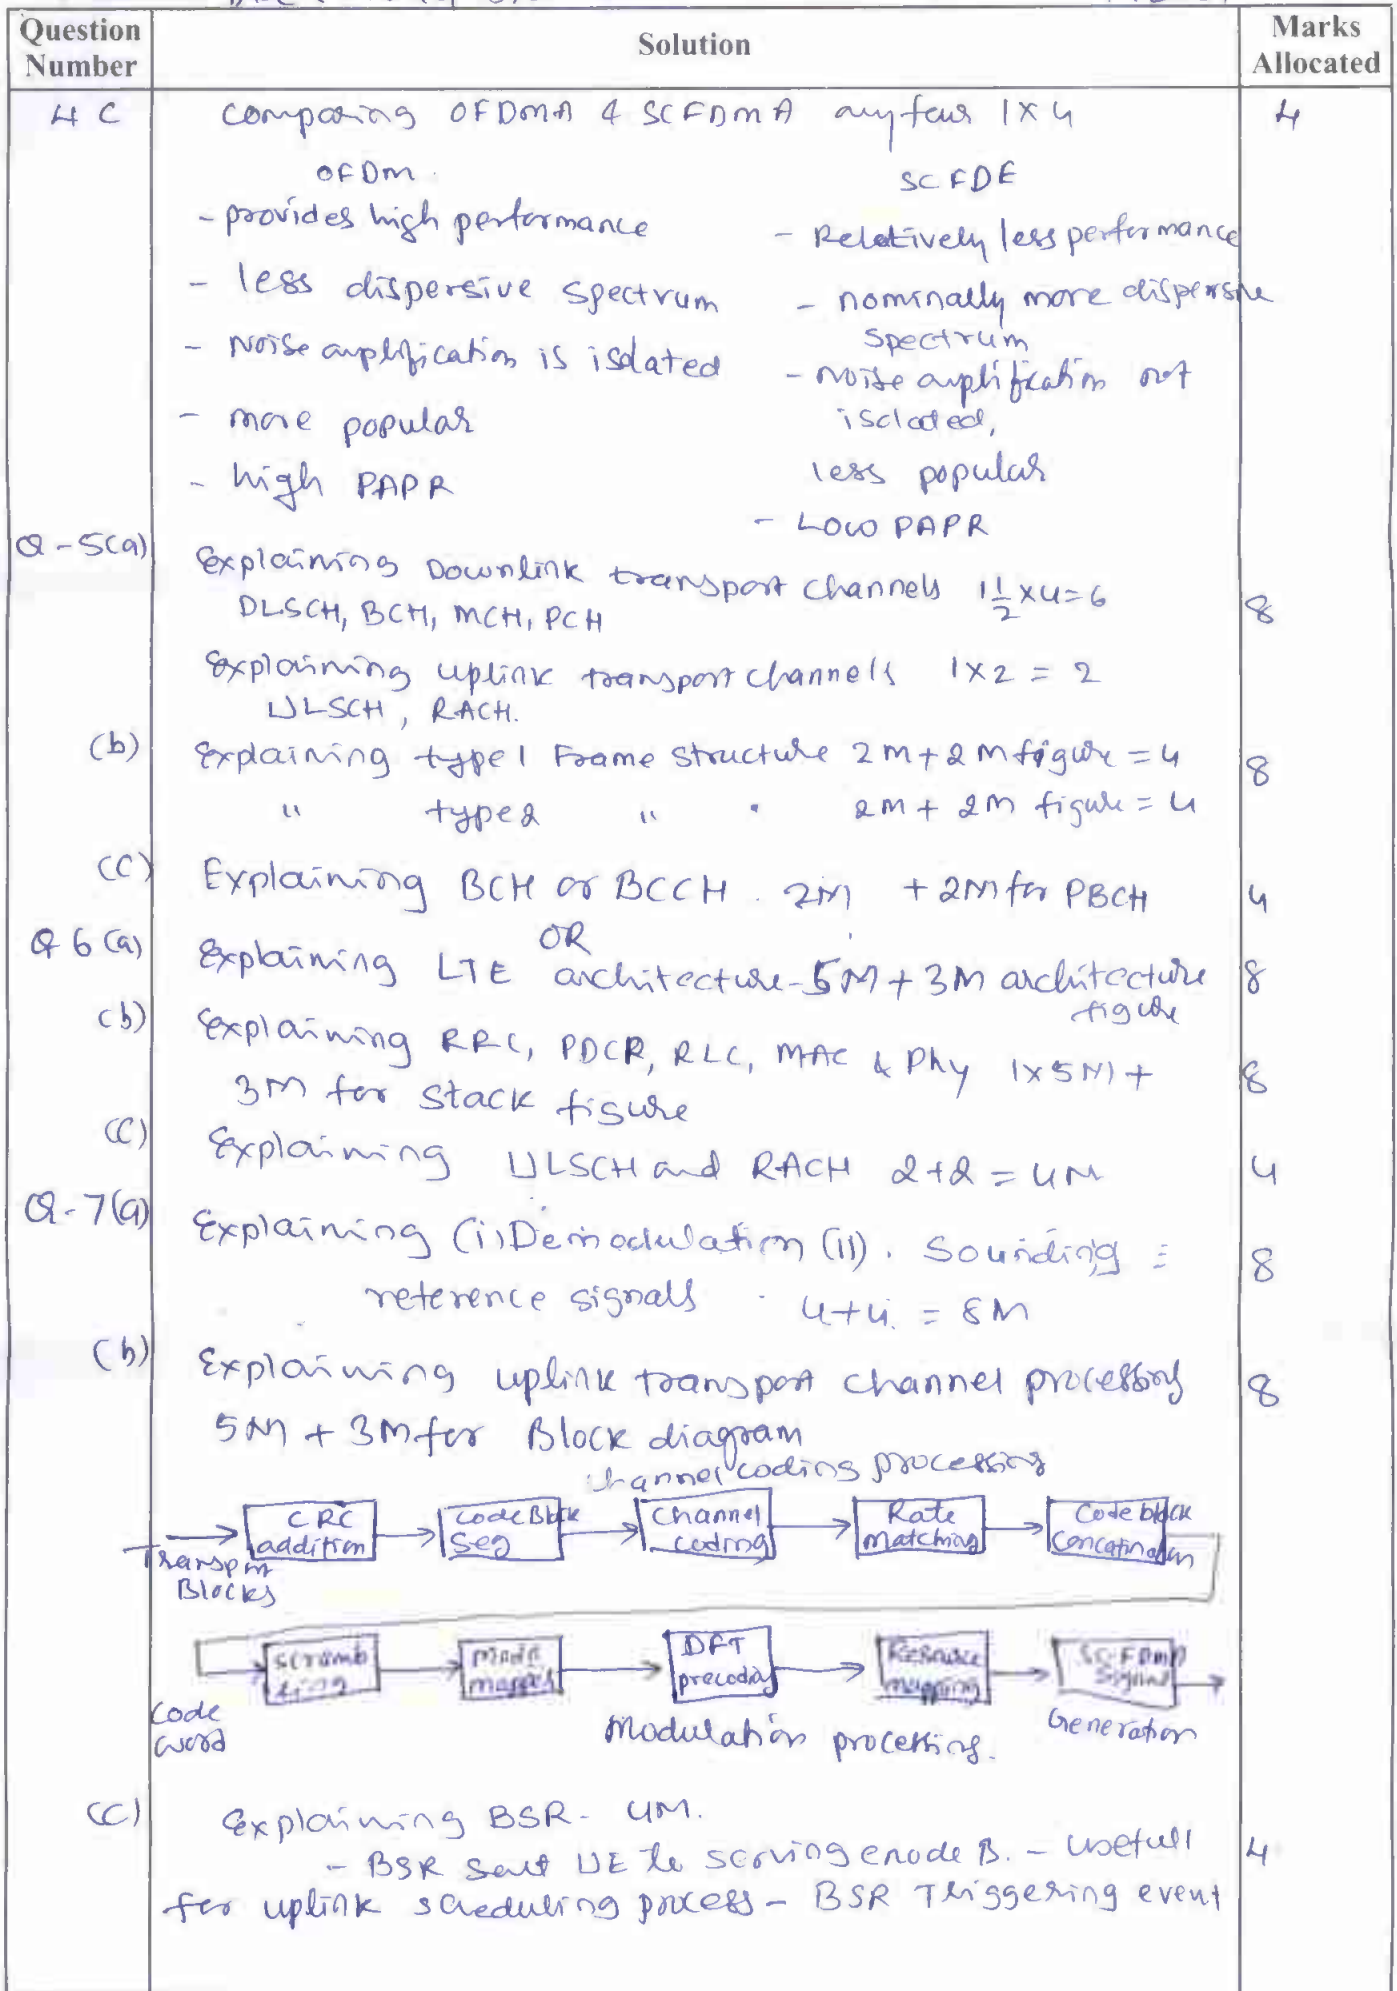 Question Number
Solution
Marks Allocated
4 C
Comparing OFDMA & SCFDMA any four 1 x 4
4
OFDM
SCFDE
- provides high performance
- Relatively less performance
- less dispersive spectrum
- nominally more dispersive
spectrum
- Noise amplification is isolated
- noise amplification not
isolated,
- more popular
less popular
- high PAPR
- Low PAPR
Q-5(a)
Explaining Downlink transport channels 1 1/2 x 4 = 6
DLSCH, BCH, MCH, PCH
8
Explaining uplink transport channels 1x2 = 2
ULSCH, RACH.
(b)
Explaining type 1 Frame structure 2M+2M figure = 4
8
" type2 " " 2M+ 2M figure = 4
(C)
Explaining BCH or BCCH. 2M + 2M for PBCH
4
OR
Q 6 (a)
Explaining LTE architecture - 5M + 3M architecture
figure
8
(b)
Explaining RRC, PDCR, RLC, MAC & Phy 1x5M +
8
3M for stack figure
(C)
Explaining ULSCH and RACH 2+2 = 4M
4
Q-7(a)
Explaining (i) Demodulation (ii). Sounding
8
reference signals 4+4. = 8M
(b)
Explaining uplink transport channel processing
8
5M + 3M for Block diagram
channel coding processing
CRC addition
Code Block Seg
Channel coding
Rate matching
Code block Concatination
Transport Blocks
scrambling
Mode mapper
DFT precoding
Resource mapping
SC FDMA Signal
Generation
Code word
Modulation processing.
(C)
Explaining BSR - 4M.
- BSR sent UE to serving enode B. - usefull
4
for uplink scheduling process - BSR Triggering event